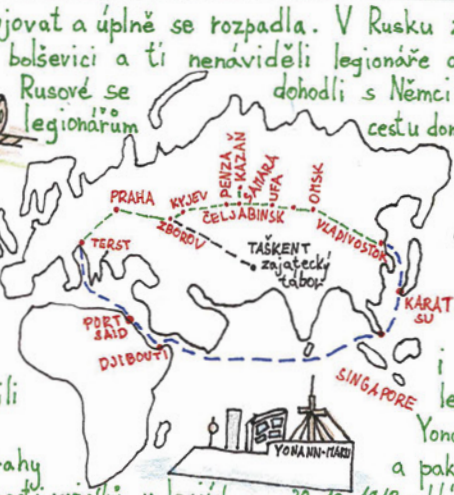 jovat a úplně se rozpadla. V Rusku
bolševici a ti nenáviděli legionáře
Rusové se dohodli s Němci
legionářům cestu
PRAHA
KYJEV
PENZA
KAZAŇ
SAMARA
UFA
OMSK
ČELJABINSK
VLADIVOSTOK
ZBOROV
TERST
TAŠKENT
zajatecký
tábor
PORT
SAID
DJIBOUTI
KARAT
SU
SINGAPORE
YONANN-MARU
i
a pak